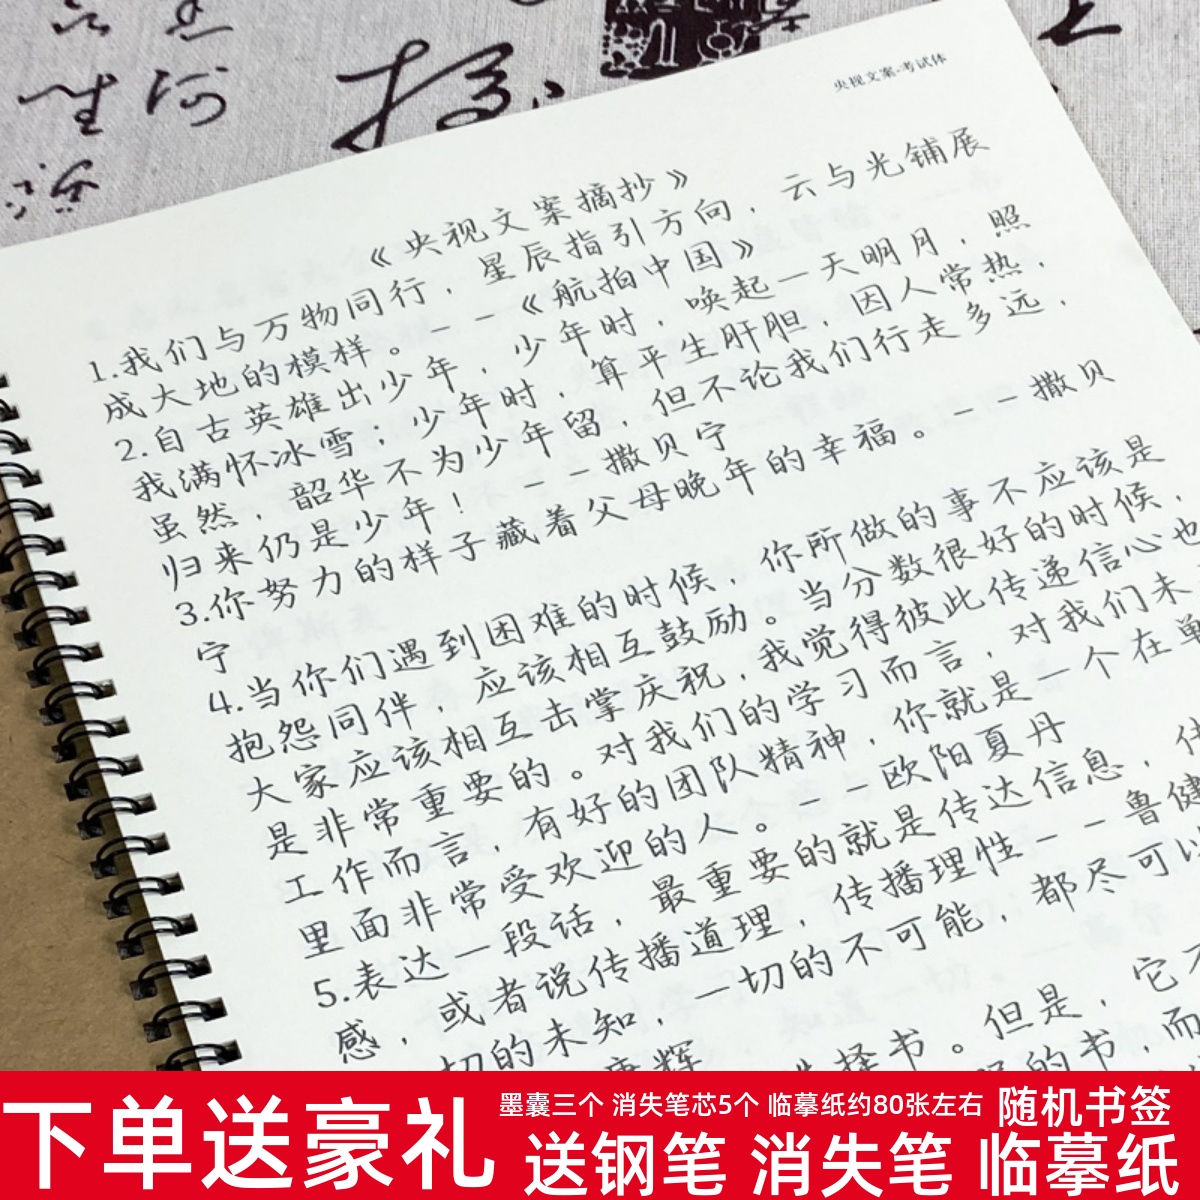 央视文案·考试体
《央视文案摘抄》
1.我们与万物同行，星辰指引方向，云与光铺展
成大地的模样。--《航拍中国》
2.自古英雄出少年，少年时，唤起一天明月，照
我满怀冰雪；少年时，算平生肝胆，因人常热，
虽然，韶华不为少年留，但不论我们行走多远，
归来仍是少年！--撒贝宁
3.你努力的样子藏着父母晚年的幸福。--撒贝
宁
4.当你们遇到困难的时候，你所做的事不应该是
抱怨同伴，应该相互鼓励。当分数很好的时候，
大家应该相互击掌庆祝，我觉得彼此传递信心也
是非常重要的。对我们的学习而言，对我们未
工作而言，有好的团队精神，你就是一个在单
里面非常受欢迎的人。--欧阳夏丹
5.表达一段话，最重要的就是传达信息，传
感，或者说传播道理，传播理性--鲁健
切的未知，一切的不可能，都尽可以
康辉
择书。但是，它不
的书，而
下单送豪礼
墨囊三个 消失笔芯5个 临摹纸约80张左右 随机书签
送钢笔 消失笔 临摹纸